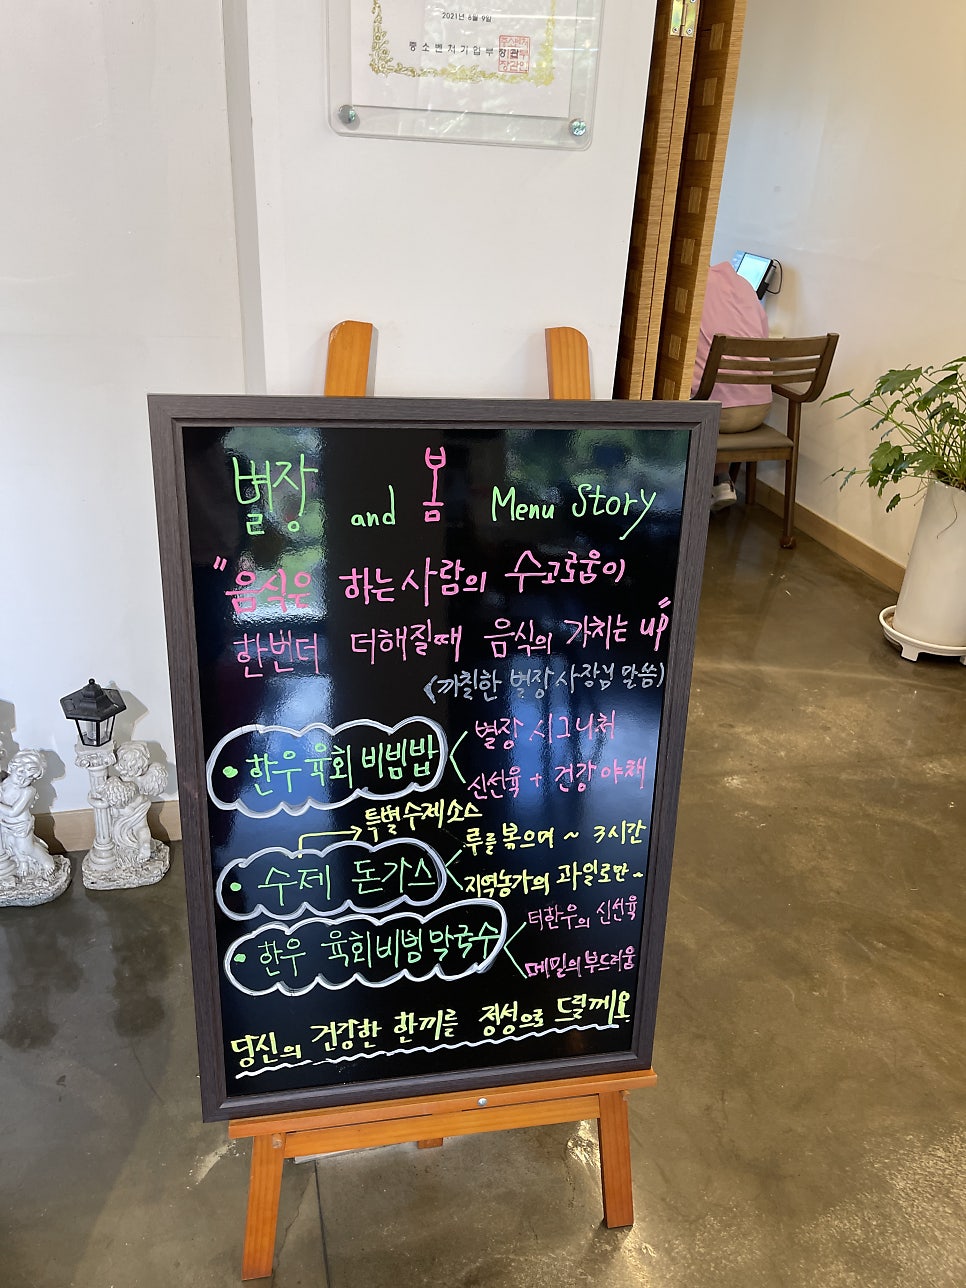 2021년 6월 9일
중소벤처기업부장관
별장 and 봄 Menu Story
"음식은 하는사람의 수고로움이
한번더 더해질때 음식의 가치는 up"
(까칠한 별장사장님 말씀)
• 한우육회비빔밥
별장 시그니처
신선육 + 건강야채
특별수제소스
• 수제 돈가스
루를볶으며 ~ 3시간
지역농가의 과일로만~
• 한우 육회비빔막국수
더한우의 신선육
메밀의부드러움
당신의 건강한 한끼를 정성으로 드릴께요